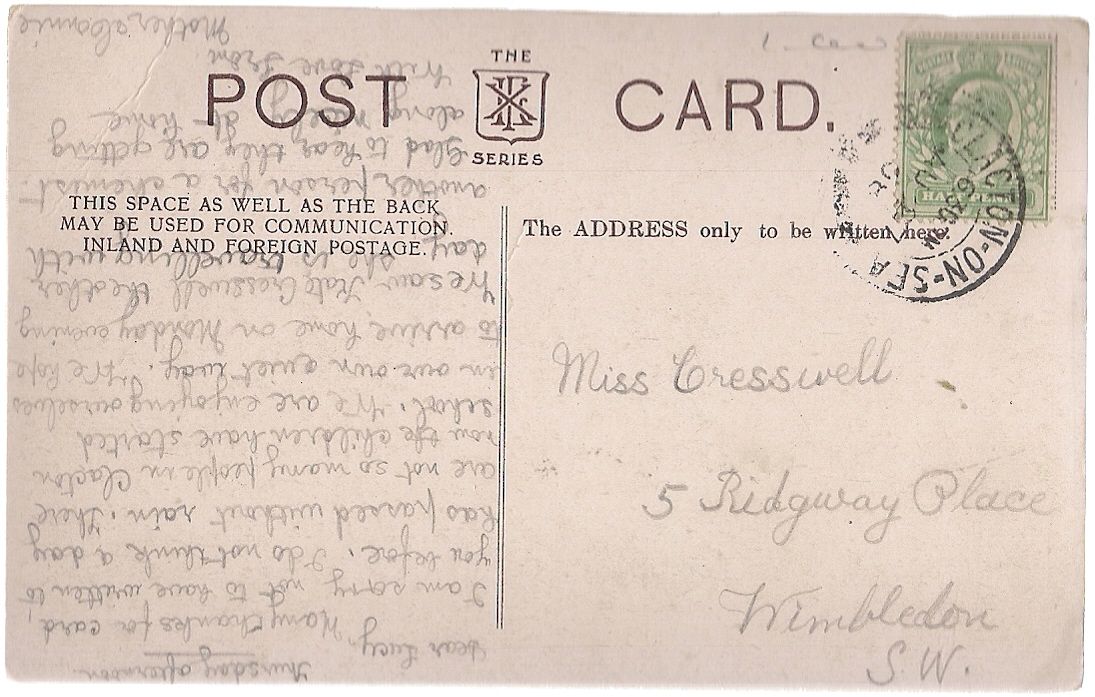 POST CARD.
THE
SERIES
THIS SPACE AS WELL AS THE BACK
MAY BE USED FOR COMMUNICATION.
INLAND AND FOREIGN POSTAGE.
The ADDRESS only to be written here.
CLACTON-ON-SEA
Miss Cresswell
5 Ridgway Place
Wimbledon
S.W.
Thursday afternoon
Dear Lucy,
Many thanks for card,
I am sorry not to have written to
you before. I do not think a day
has passed without rain. There
are not so many people in Clacton
now the children have started
school. We are enjoying ourselves
in our own quiet way. We hope
to arrive home on Monday evening
We saw Kate Cresswell the other
day she is travelling with
another person for a chemist.
Glad to hear they are getting
along nicely at home
With love from
Mother &